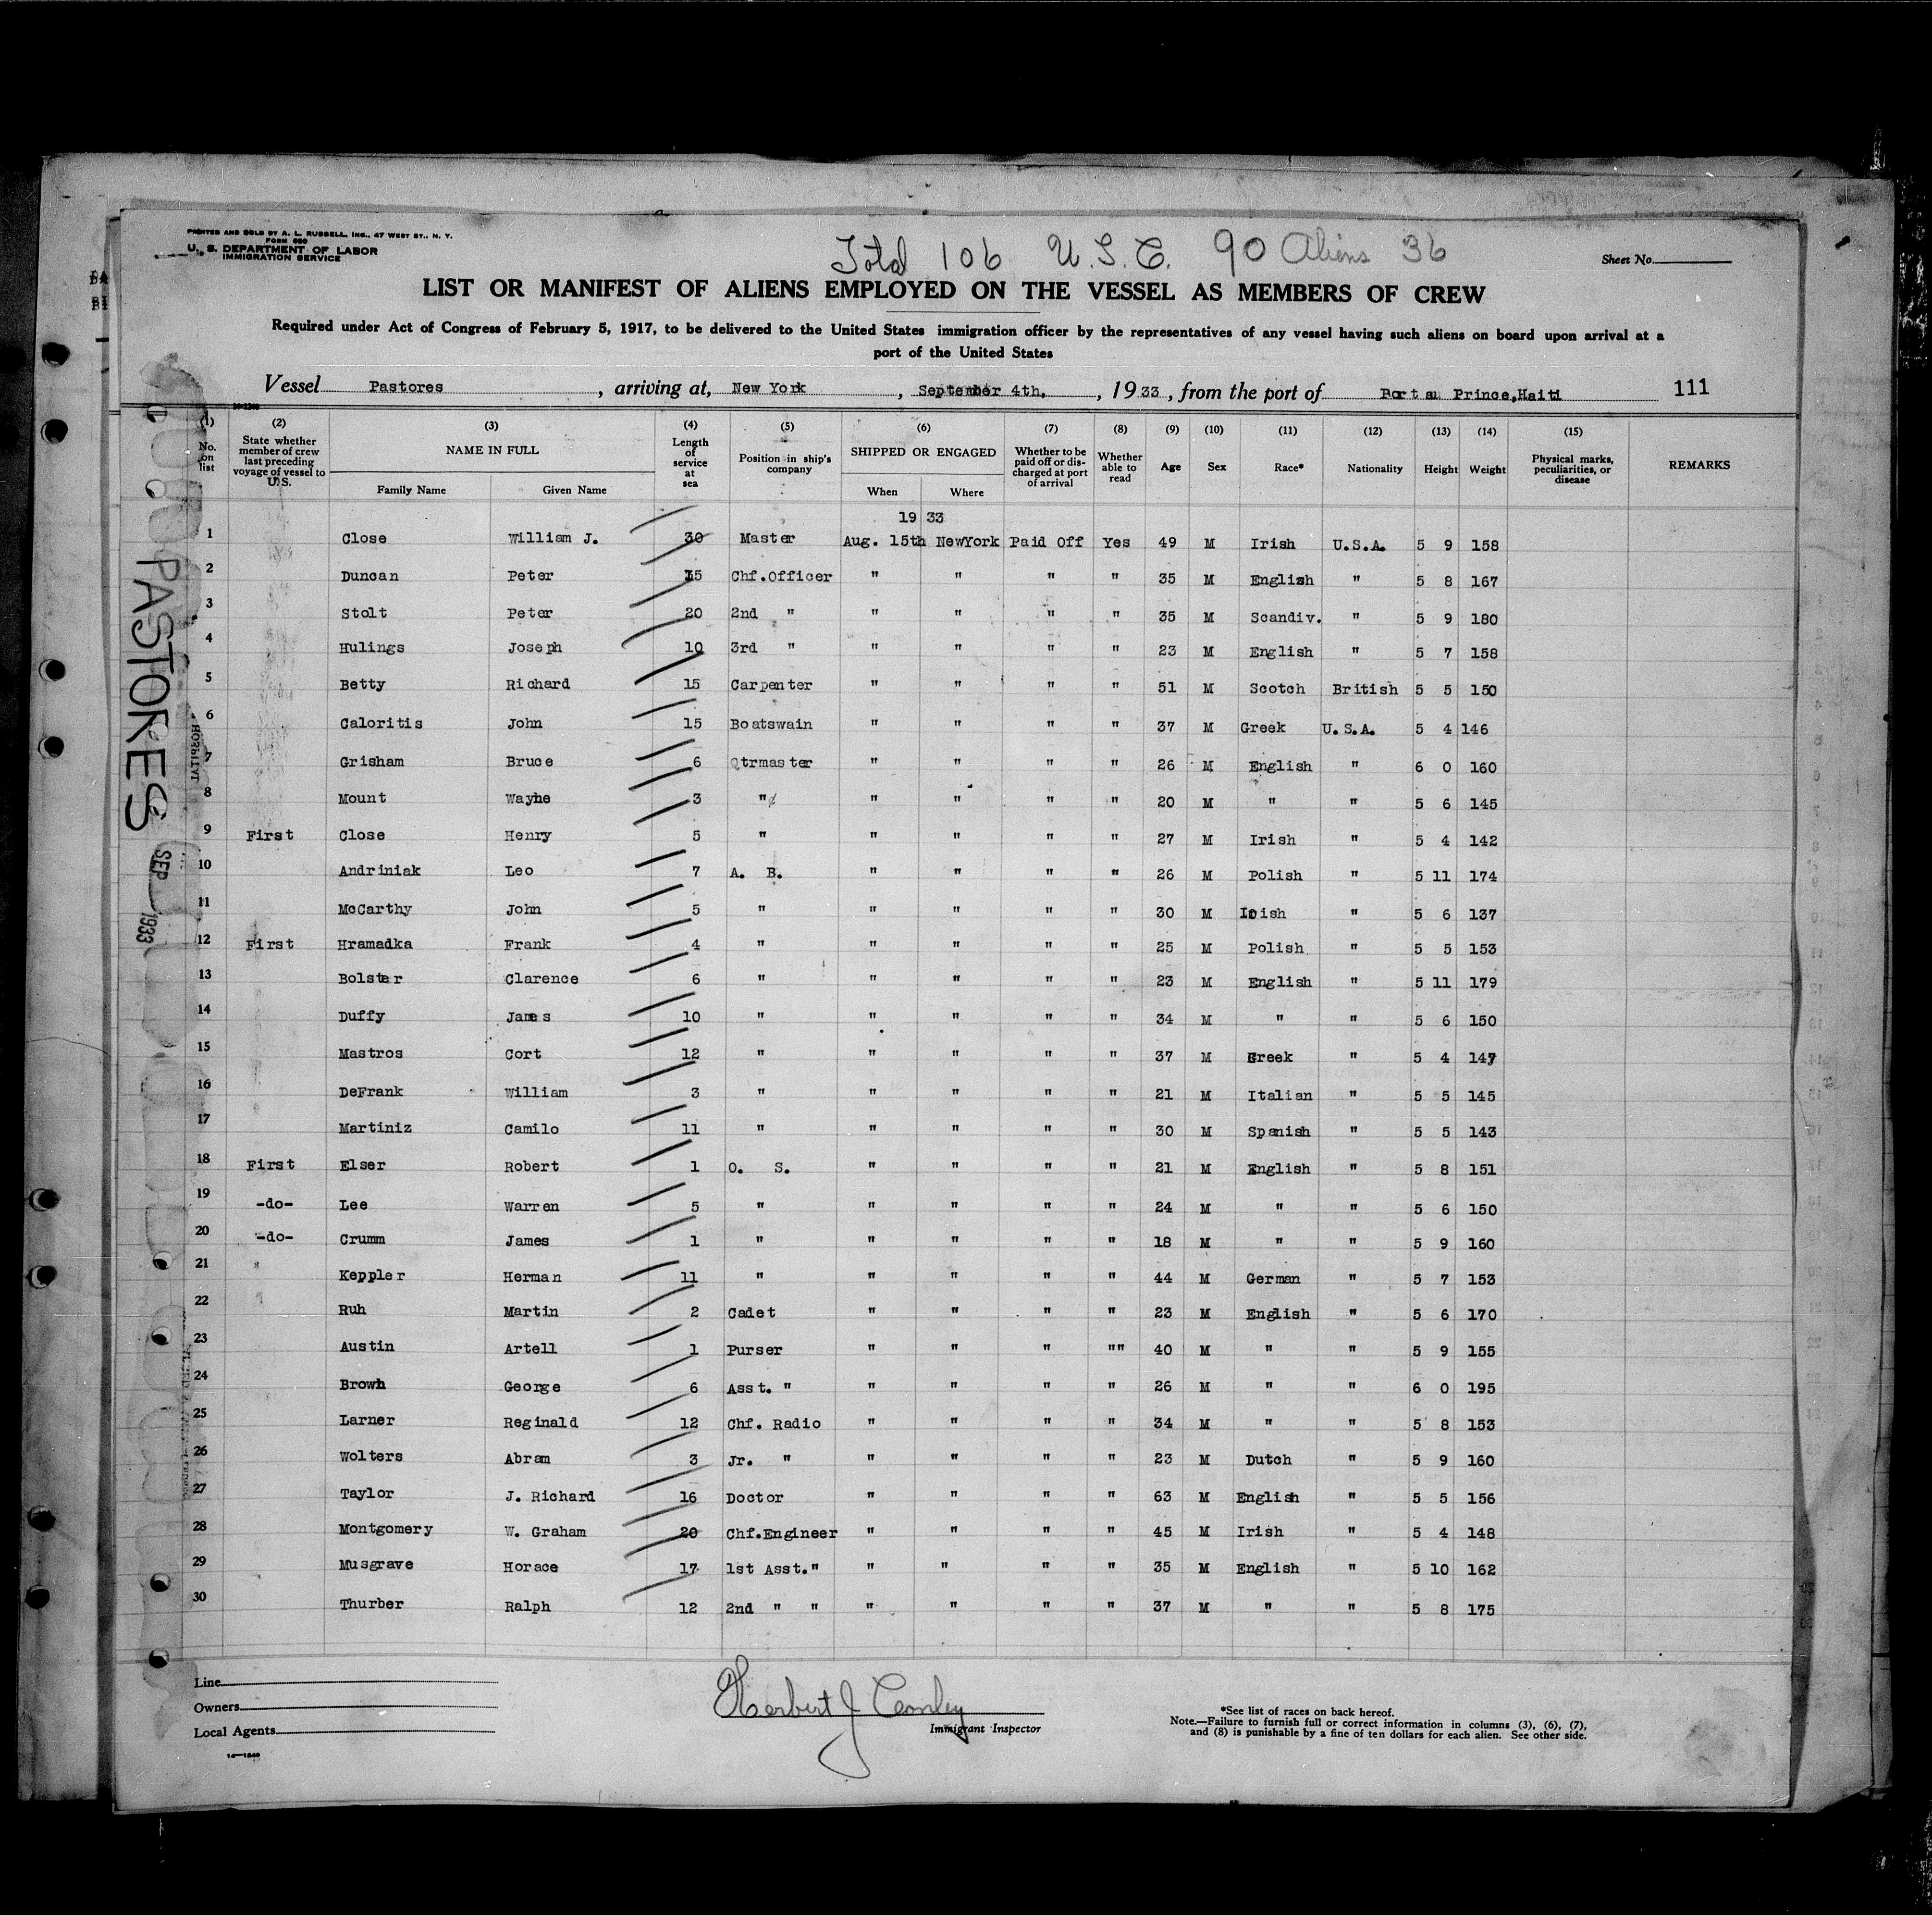 PRINTED AND SOLD BY A. L. RUSSELL, INC., 47 WEST ST., N. Y.
FORM 680
U. S. DEPARTMENT OF LABOR
IMMIGRATION SERVICE
Total 106 U.S.C. 90 Aliens 36
Sheet No.
LIST OR MANIFEST OF ALIENS EMPLOYED ON THE VESSEL AS MEMBERS OF CREW
Required under Act of Congress of February 5, 1917, to be delivered to the United States immigration officer by the representatives of any vessel having such aliens on board upon arrival at a
port of the United States
Vessel Pastores, arriving at, New York, September 4th., 1933, from the port of Port au Prince, Haiti 111
(1) No. on list (2) State whether member of crew last preceding voyage of vessel to U.S. (3) NAME IN FULL Family Name Given Name (4) Length of service at sea (5) Position in ship's company (6) SHIPPED OR ENGAGED When Where (7) Whether to be paid off or discharged at port of arrival (8) Whether able to read (9) Age (10) Sex (11) Race* (12) Nationality (13) Height (14) Weight (15) Physical marks, peculiarities, or disease REMARKS
19 33
1 Close William J. 30 Master Aug. 15th NewYork Paid Off Yes 49 M Irish U.S.A. 5 9 158
2 Duncan Peter 15 Chf.Officer " " " " 35 M English " 5 8 167
3 Stolt Peter 20 2nd " " " " " 35 M Scandiv. " 5 9 180
4 Hulings Joseph 10 3rd " " " " " 23 M English " 5 7 158
5 Betty Richard 15 Carpenter " " " " 51 M Scotch British 5 5 150
6 Caloritis John 15 Boatswain " " " " 37 M Greek U.S.A. 5 4 146
7 Grisham Bruce 6 Qtrmaster " " " " 26 M English " 6 0 160
8 Mount Wayne 3 " " " " " 20 M " " 5 6 145
9 First Close Henry 5 " " " " " 27 M Irish " 5 4 142
10 Andriniak Leo 7 A. B. " " " " 26 M Polish " 5 11 174
11 McCarthy John 5 " " " " " 30 M Irish " 5 6 137
12 First Hramadka Frank 4 " " " " " 25 M Polish " 5 5 153
13 Bolster Clarence 6 " " " " " 23 M English " 5 11 179
14 Duffy James 10 " " " " " 34 M " " 5 6 150
15 Mastros Cort 12 " " " " " 37 M Greek " 5 4 147
16 DeFrank William 3 " " " " " 21 M Italian " 5 5 145
17 Martiniz Camilo 11 " " " " " 30 M Spanish " 5 5 143
18 First Elser Robert 1 O. S. " " " " 21 M English " 5 8 151
19 -do- Lee Warren 5 " " " " " 24 M " " 5 6 150
20 -do- Crumm James 1 " " " " " 18 M " " 5 9 160
21 Keppler Herman 11 " " " " " 44 M German " 5 7 153
22 Ruh Martin 2 Cadet " " " " 23 M English " 5 6 170
23 Austin Artell 1 Purser " " " "" 40 M " " 5 9 155
24 Brown George 6 Asst. " " " " " 26 M " " 6 0 195
25 Larner Reginald 12 Chf. Radio " " " " 34 M " " 5 8 153
26 Wolters Abram 3 Jr. " " " " " 23 M Dutch " 5 9 160
27 Taylor J. Richard 16 Doctor " " " " 63 M English " 5 5 156
28 Montgomery W. Graham 20 Chf.Engineer " " " " 45 M Irish " 5 4 148
29 Musgrave Horace 17 1st Asst." " " " " 35 M English " 5 10 162
30 Thurber Ralph 12 2nd " " " " " " 37 M " " 5 8 175
Line
Owners
Local Agents
14—1240
Herbert J
Immigrant Inspector
*See list of races on back hereof.
Note.—Failure to furnish full or correct information in columns (3), (6), (7),
and (8) is punishable by a fine of ten dollars for each alien. See other side.
PASTORES
SEP 1933
HOSPITAL